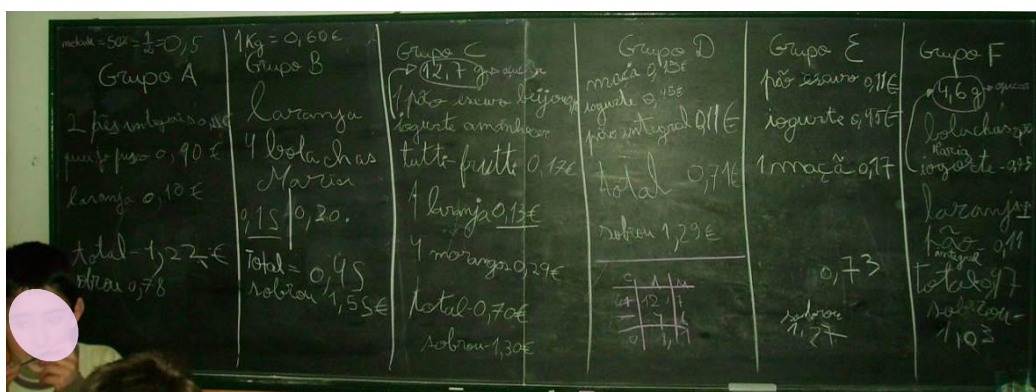 metade = 50% = 1/2 = 0,5
Grupo A
2 pães integrais 0,
queijo fresco 0,90 €
laranja 0,10 €
total - 1,22 €
sobrou 0,78
1 Kg = 0,60 €
Grupo B
laranja
4 bolachas
Maria
0,15 0,30.
Total = 0,45
sobrou 1,55 €
Grupo C
12,7 g
1 pão escuro
iogurte amanhecer
tutti-frutti 0,17€
1 laranja 0,13€
4 morangos 0,29€
total-0,70€
sobrou-1,30€
Grupo D
maçã 0,15€
iogurte 0,45€
pão integral 0,11€
total 0,71€
sobrou 1,29€
12,7
Grupo E
pão escuro 0,11€
iogurte 0,45€
1 maçã 0,17
0,73
sobrou
1,27
Grupo F
4,6g
bolachas
Maria
iogurte
laranja
pão 0,11
integral
total 0,97
sobrou-
1,03